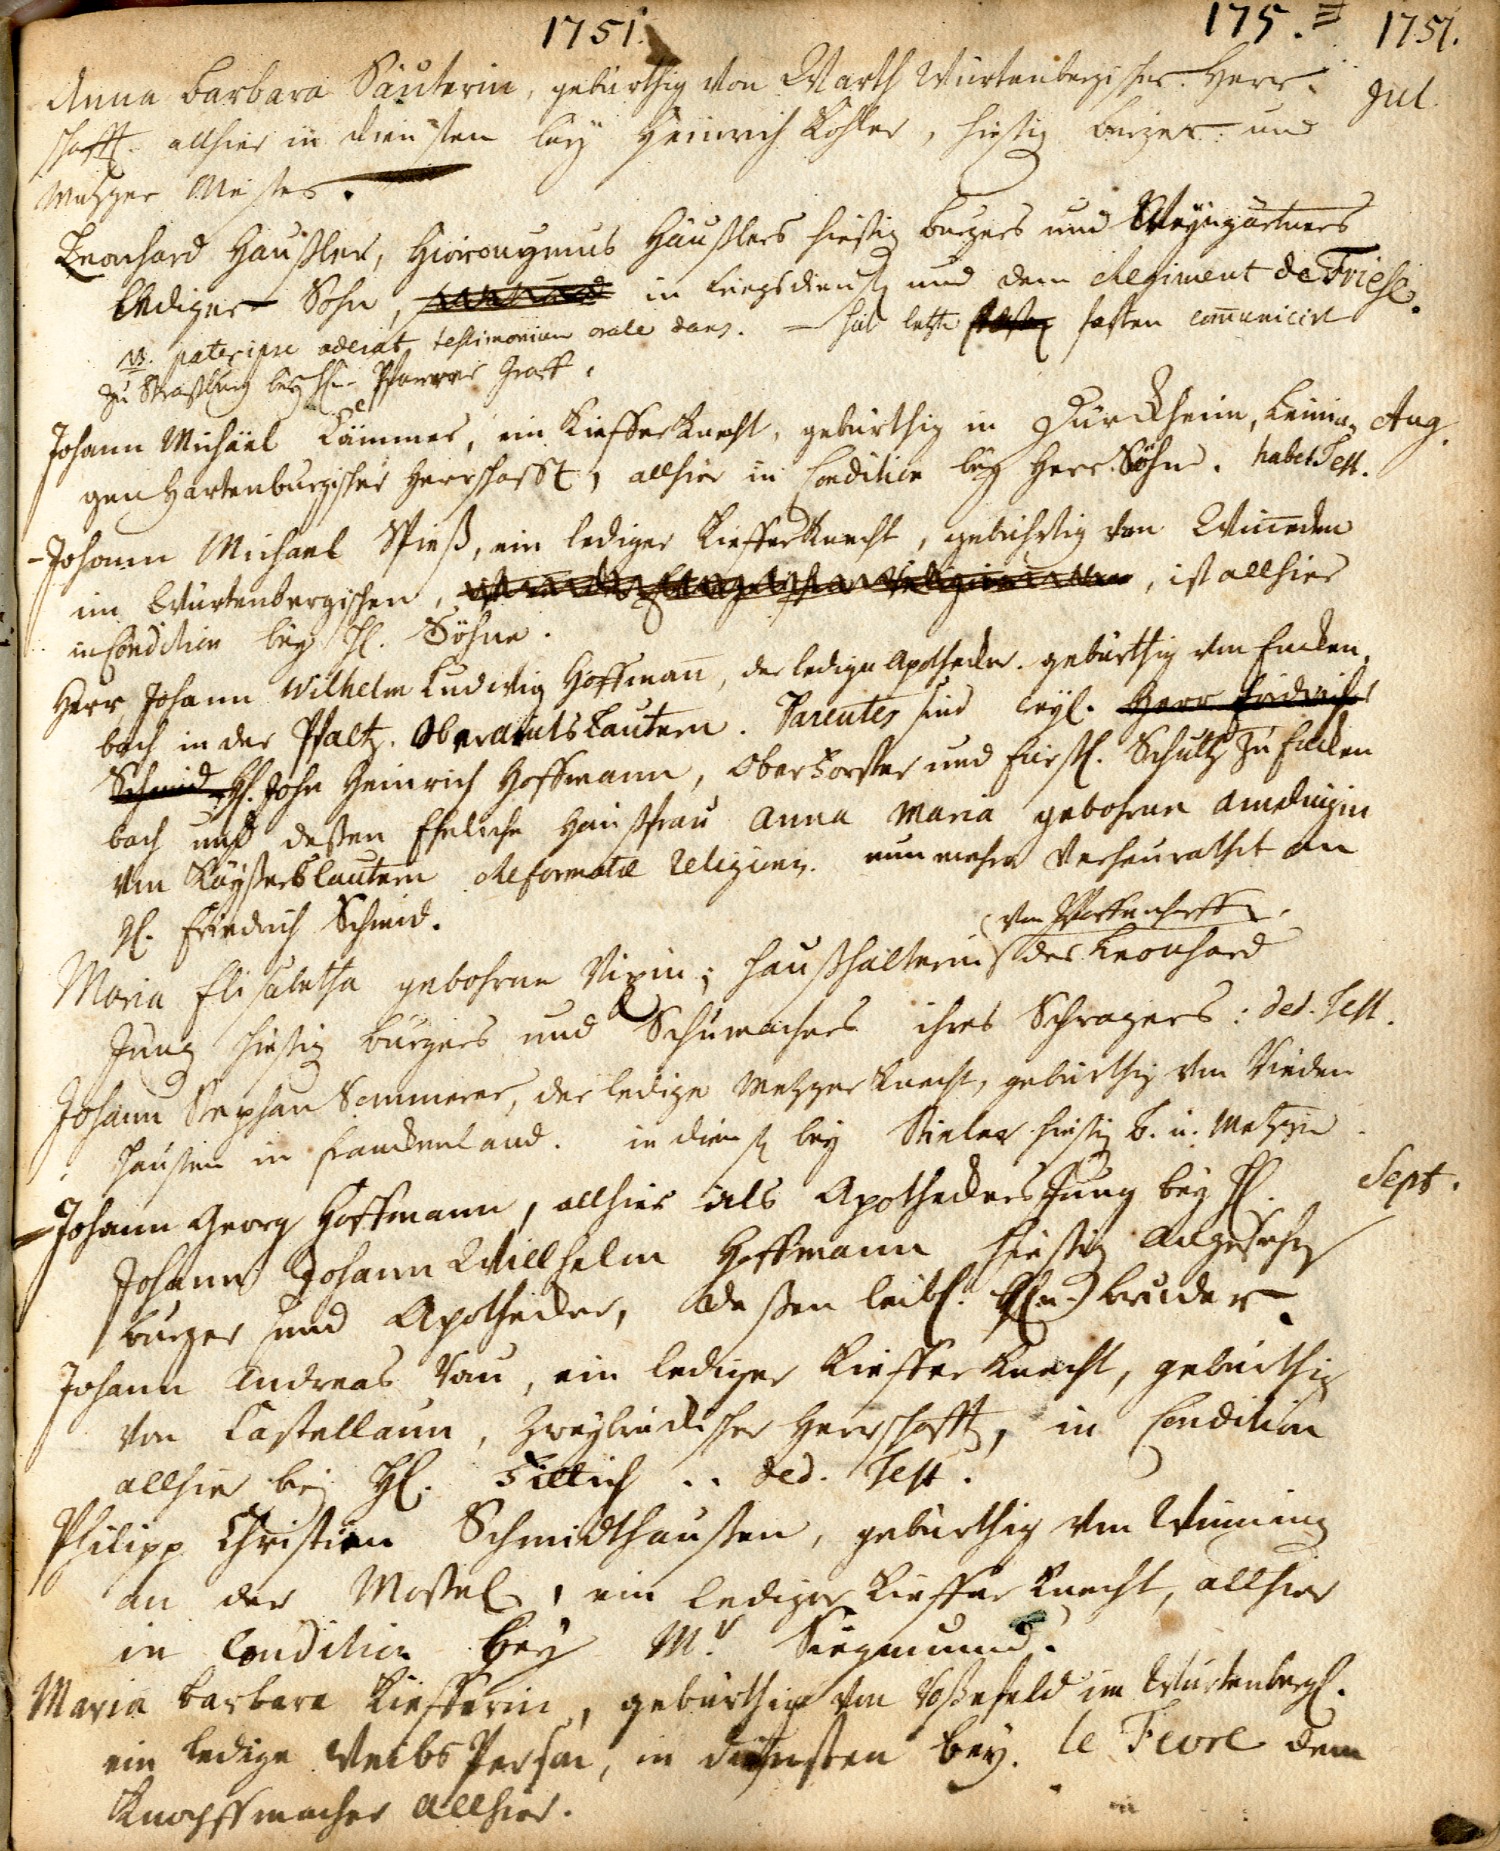 1751. 175. 1751.
Anna Barbara Säuterin, gebürthig von Warth Würtenbergischer Herr- Jul.
schafft. allhier in diensten bey Heinrich Kohler, hiesig burger und
Metzger Meister.
Leonhard Haußler, Hieronymus Häußlers hiesig burgers und Weyngärtners
lediger Sohn, in Kriegsdienst und dem Regiment de Friese.
NB. pater ipse aderat testimonium orale dans. – hat letzte fasten communicirt
zu Straßburg bey H. Pfarrer Graff.
Johann Michäel Cämmer, ein Kieffer Knecht, gebürthig in Dürckheim, Leinin- Aug.
gen Hartenburgischer Herrschafft, allhier in Condition bey Herr Söhne. habet Test.
Johann Michael Spieß, ein lediger Kieffer Knecht, gebürtig von Winneden
im Würtenbergischen, ist allhier
in Condition bey H. Söhne.
Herr Johann Wilhelm Ludwig Hoffmann, der ledige Apothecker. gebürthig von Encken-
bach in der Pfaltz. Oberamts Lautern. Parentes sind weyl. Herr Friderich
Schmid H. Johe Heinrich Hoffmann, Oberforster und fürstl. Schultz zu Encken
bach und deßen Eheliche Haußfrau Anna Maria gebohrne
von Kayßerslautern Reformatæ Religionis. nunmehro verheurathet an
H. Friedrich Schmid.
Maria Elisabetha gebohrne Vixin; haußhälterin des Leonhard
Jung hiesig burgers und Schumachers ihres Schwagers: ded. Test.
Johann Stephan Sommerer, der ledige Metzger Knecht, gebürthig von Nieden
haußen in Franckenland. in dienst bey Stieler hiesig B. u. Metzger
Johann Georg Hoffmann, allhier als Apotheckers Jung bey H. Sept.
Johann Johann Willhelm Hoffmann hiesig angesehen
burger und Apothecker, deßen leibl. bruder.
Johann Andreas Vau, ein lediger Kieffer Knecht, gebürthig
von Castellaun, Zweybrückischer Herrschafft, in Condition
allhier bey H. Fillich .. ded. Test.
Philipp Christian Schmidthaußen, gebürthig von Winning
an der Mossel, ein lediger Kieffer Knecht, allhier
in Condition bey Mr Siegmund.
Maria Barbara Kiefferin, gebürthig von Boßefeld im Würtenbergl.
ein ledige Weibs Person, in diensten bey. le Fevre dem
Knopffmacher allhier.